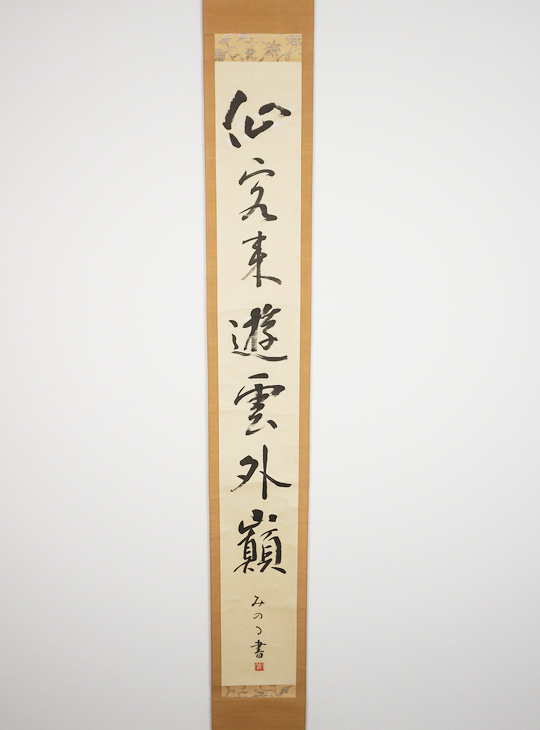 仙客来遊雲外巓
みのる書